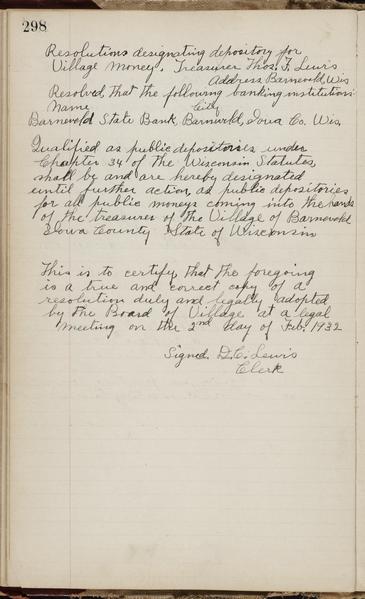 298
Resolutions designating depository for
Village Money. Treasurer Thos. F. Lewis
Address Barneveld, Wis
Resolved, that the following banking institutions
Name City
Barneveld State Bank, Barneveld, Iowa Co. Wis.
Qualified as public depositories under
Chapter 34 of the Wisconsin Statutes,
shall by and are hereby designated
until further action, as public depositories
for all public moneys coming into the hands
of the treasurer of the Village of Barneveld
Iowa County State of Wisconsin
This is to certify, that the foregoing
is a true and correct copy of a
resolution duly and legally adopted
by the Board of Village at a legal
meeting on the 2nd day of Feb. 1932
Signed D.C. Lewis
Clerk